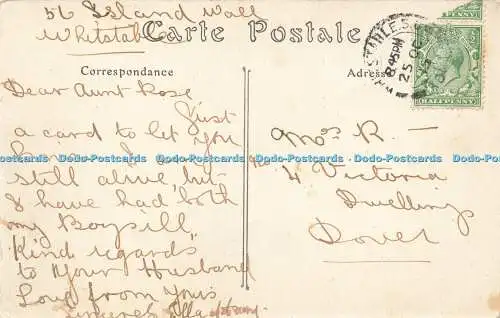 56 Island Wall
Whitstable
Carte Postale
Correspondance
Adresse
Dear Aunt Rose
Just
a card to let you
know I am
still alive, but
& have had both
my Boys ill
Kind regards
to Your Husband
Love from Yours
Sincerely Ella
Mrs R—
4 Victoria
Dwellings
Dover
8.45PM
25 OC
HALFPENNY
Dodo-Postcards Dodo-Postcards Dodo-Postcards Dodo-Postcards Dodo-Postcards